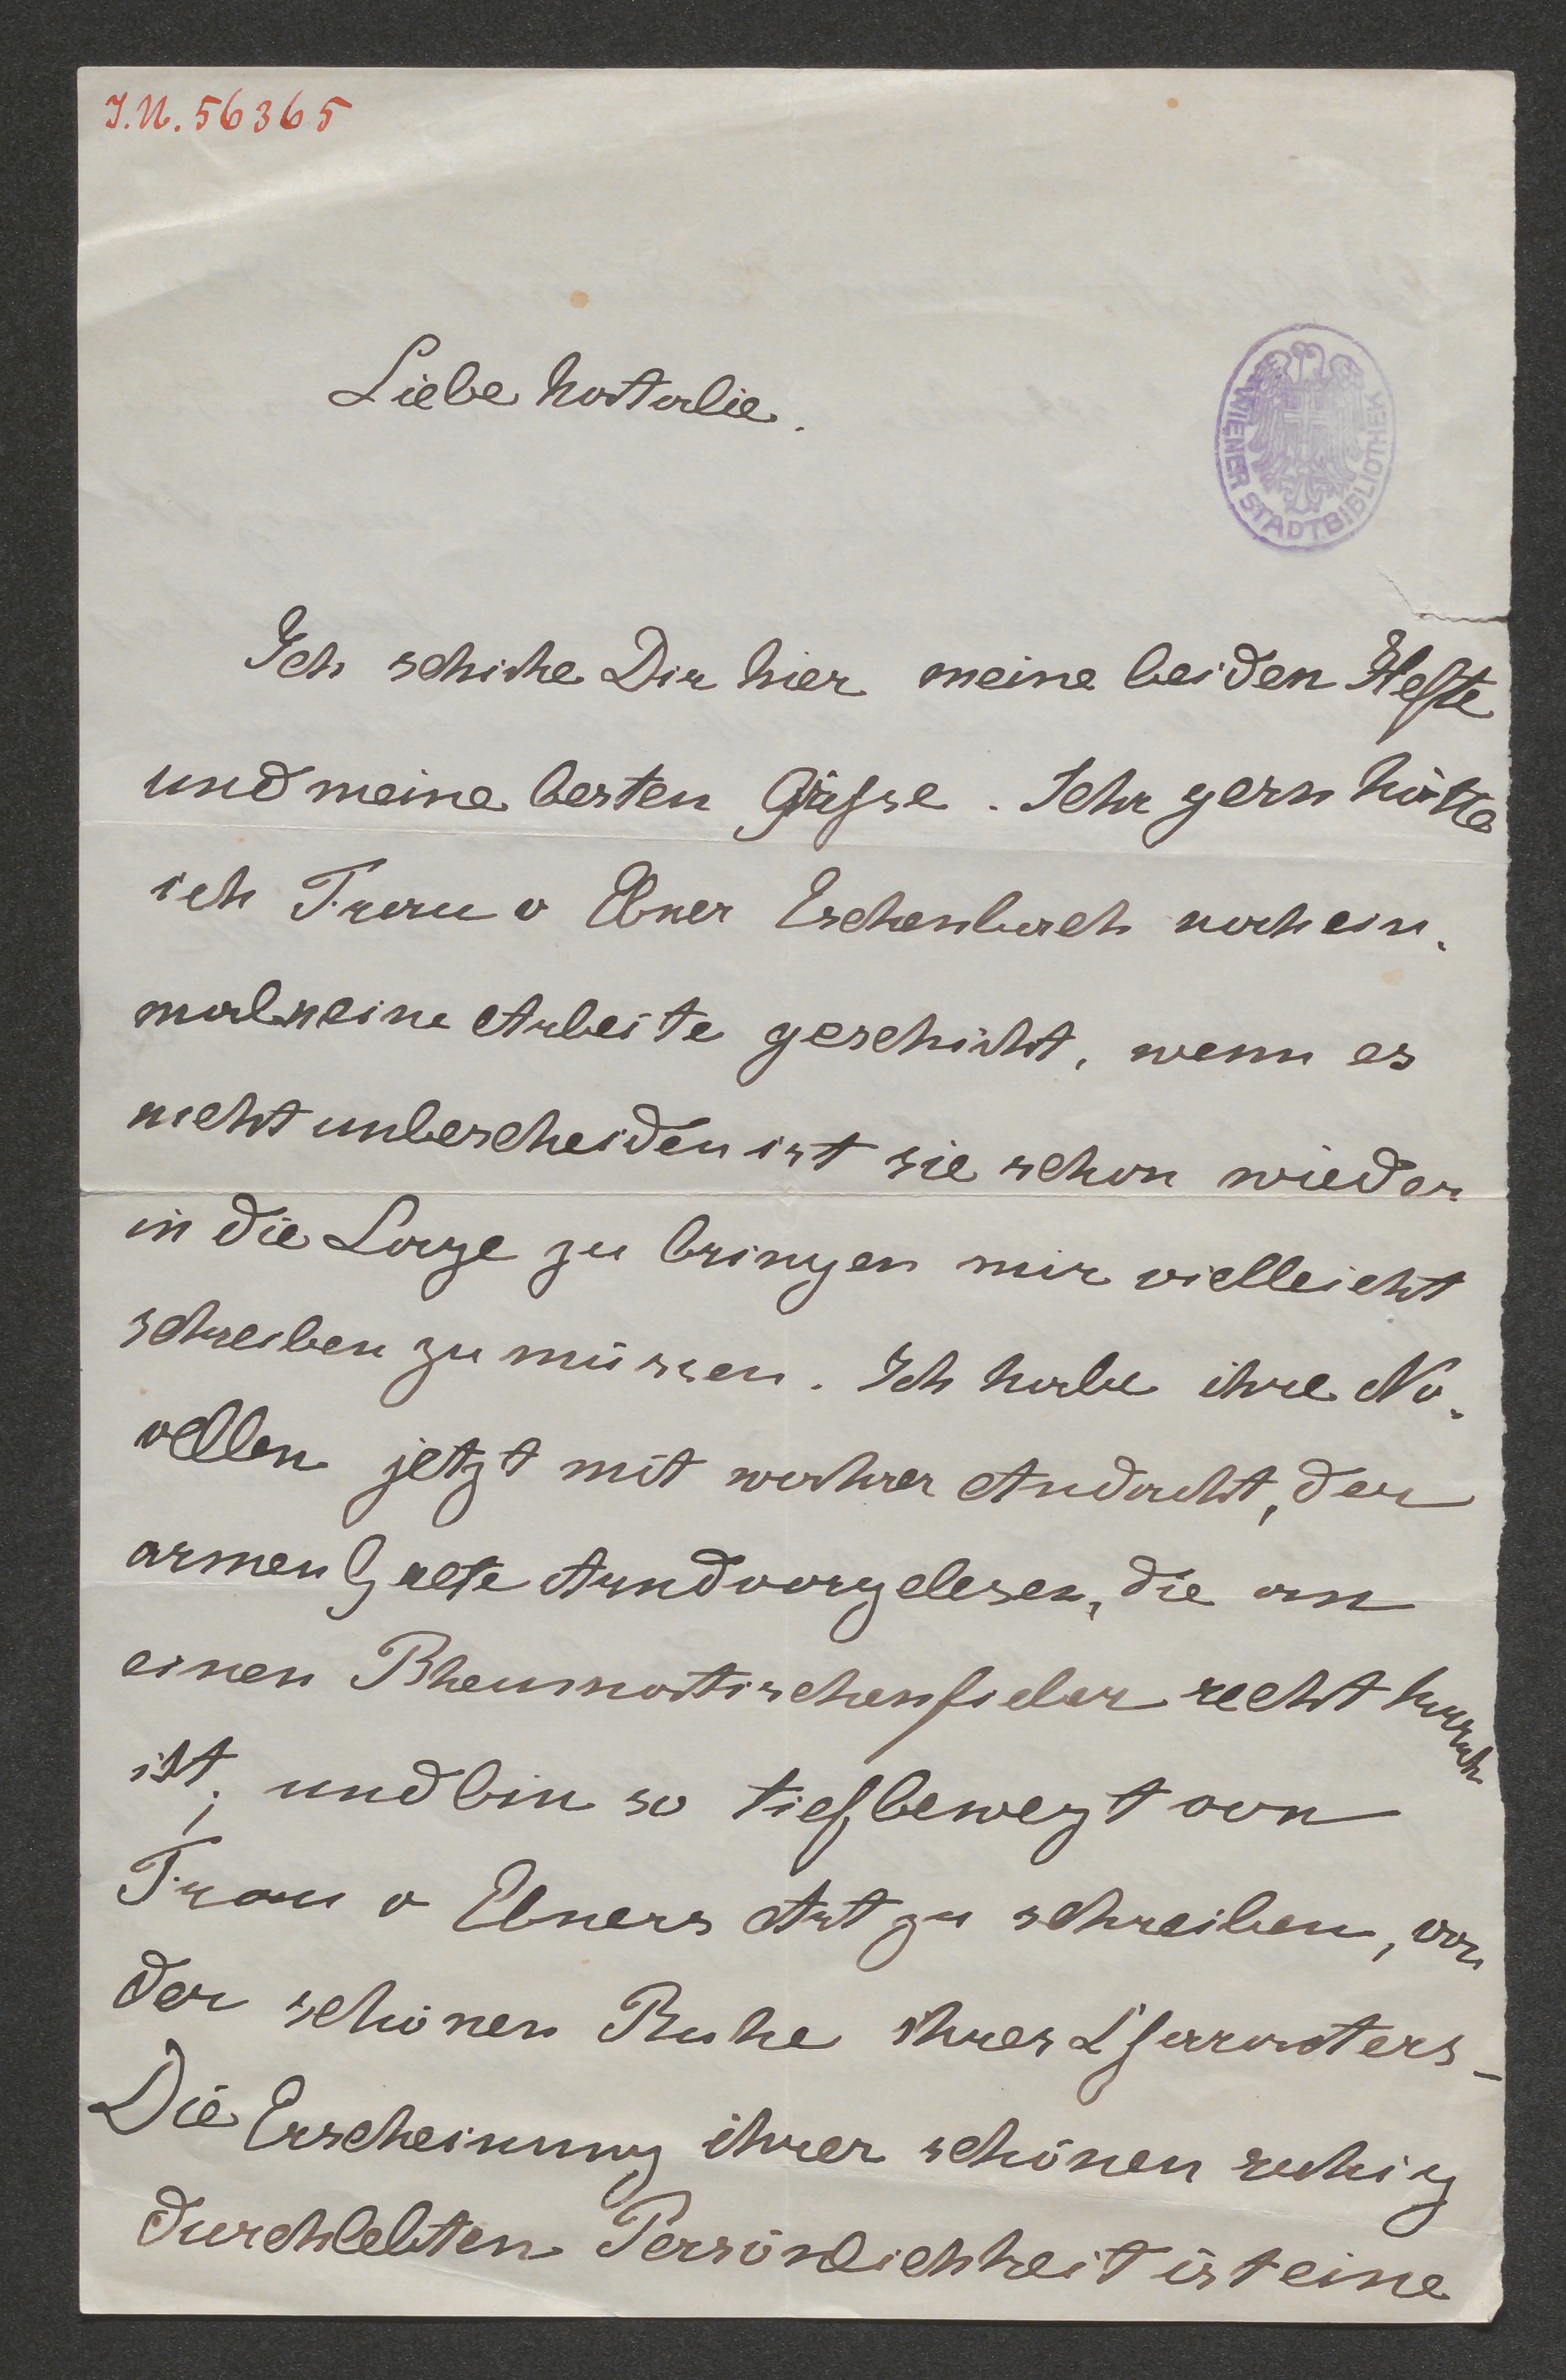 I.N. 56365
Liebe Natalie.
WIENER STADTBIBLIOTHEK
Ich schicke Dir hier meine beiden Hefte
und meine besten Grüsse. Sehr gern hätte
ich Frau v Ebner Eschenbach noch ein-
mal meine Arbeite geschickt, wenn es
nicht unbescheiden ist sie schon wieder
in die Lage zu bringen mir vielleicht
schreiben zu müssen. Ich habe ihre No-
vellen jetzt mit wahrer Andacht, der
armen Grete A und vorgelesen, die an
einen Rheumatischenfieber recht krank
ist; und bin so tief bewegt von
Frau v Ebners Art zu schreiben, von
der schönen Ruhe ihres Charakters-
Die Erscheinung ihrer schönen ruhig
durchlebten Persönlichkeit ist eine